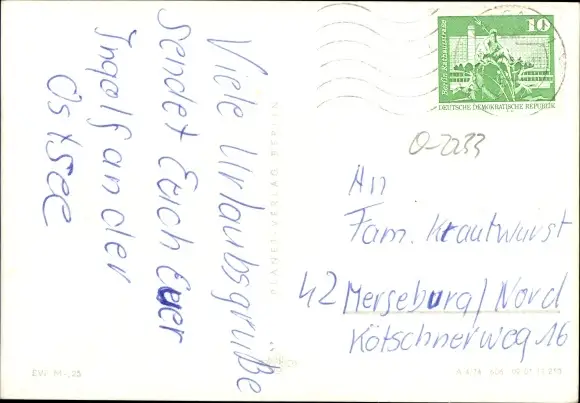 Viele Urlaubsgrüße
sendet Euch Euer
Ingolf an der
Ostsee
PLANET-VERLAG BERLIN
EVP M -,25
10
Berlin, Rathausstraße
DEUTSCHE DEMOKRATISCHE REPUBLIK
O-2233
An
Fam. Krautwurst
42 Merseburg/Nord
Kötschnerweg 16